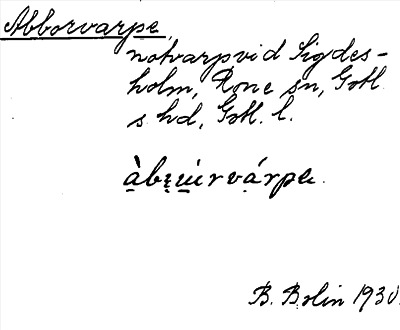 Abborvarpe,
notvarp vid Sigdes-
holm, Rone sn, Gotl
s. hd, Gotl. l.
B. Bolin 1930.